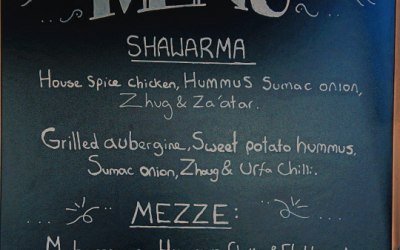 MENU
SHAWARMA
House Spice chicken, Hummus Sumac onion,
Zhug & Za'atar.
Grilled aubergine, Sweet potato hummus,
Sumac onion, Zhoug & Urfa Chilli.
MEZZE: